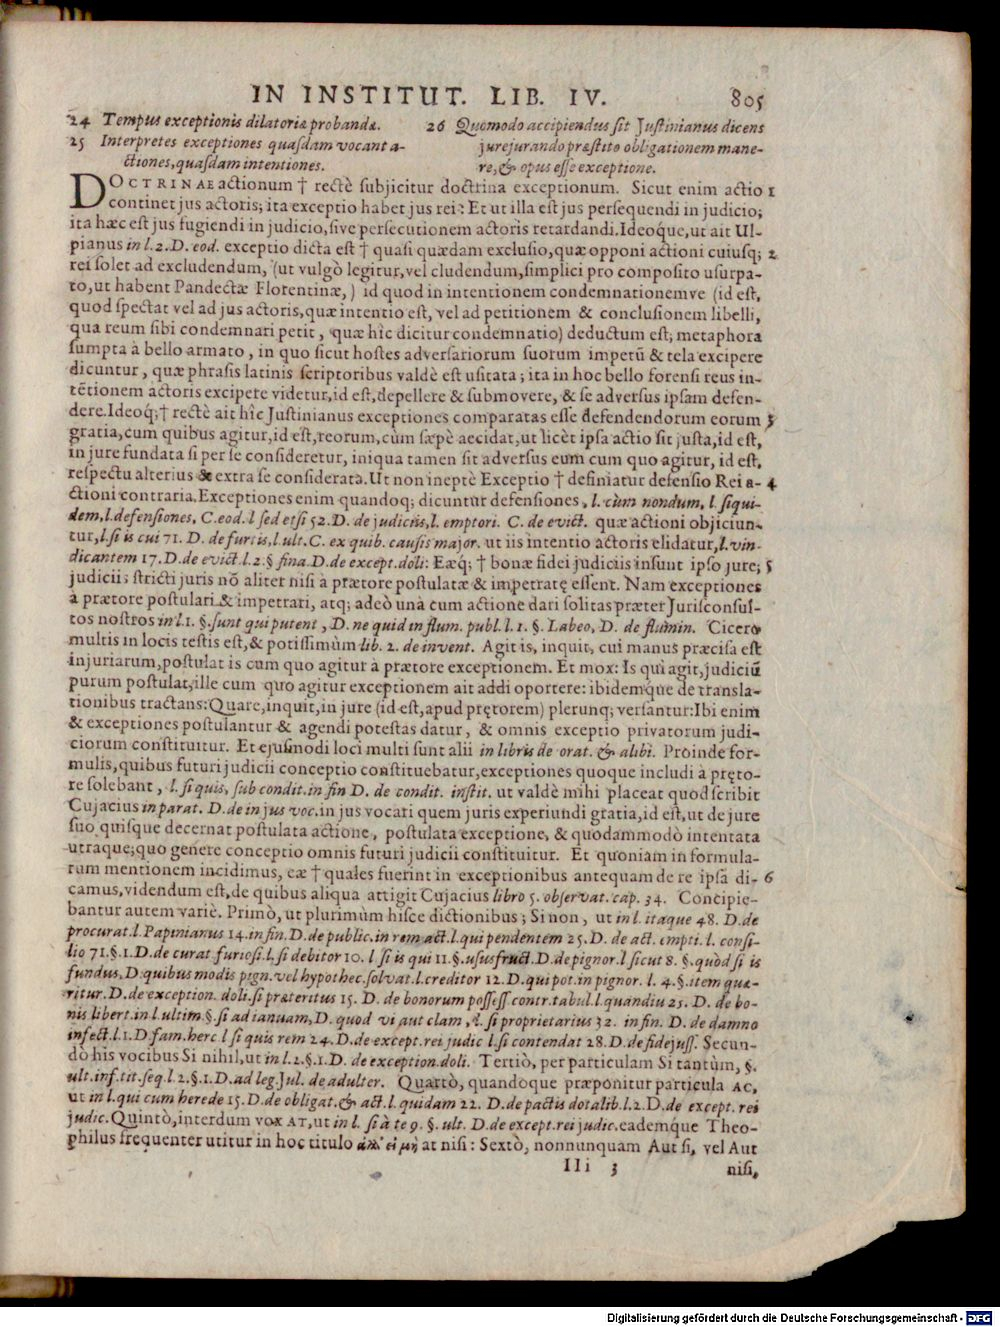 IN INSTITUT. LIB. IV. 805
24 Tempus exceptionis dilatoriæ probandæ.
25 Interpretes exceptiones quasdam vocant a-
ctiones, quasdam intentiones.
26 Quomodo accipiendus sit Justinianus dicens
jurejurando præstito obligationem mane-
re, & opus esse exceptione.
DOCTRINAE actionum † rectè subjicitur doctrina exceptionum. Sicut enim actio 1
continet jus actoris; ita exceptio habet jus rei: Et ut illa est jus persequendi in judicio;
ita hæc est jus fugiendi in judicio, sive persecutionem actoris retardandi. Ideoque, ut ait Ul-
pianus in l. 2. D. eod. exceptio dicta est † quasi quædam exclusio, quæ opponi actioni cuiusq; 2
rei solet ad excludendum, (ut vulgò legitur, vel cludendum, simplici pro composito usurpa-
to, ut habent Pandectæ Florentinæ,) id quod in intentionem condemnationemve (id est,
quod spectat vel ad jus actoris, quæ intentio est, vel ad petitionem & conclusionem libelli,
qua reum sibi condemnari petit, quæ hîc dicitur condemnatio) deductum est; metaphora
sumpta à bello armato, in quo sicut hostes adversariorum suorum impetū & tela excipere
dicuntur, quæ phrasis latinis scriptoribus valdè est usitata; ita in hoc bello forensi reus in-
tētionem actoris excipere videtur, id est, depellere & submovere, & se adversus ipsam defen-
dere. Ideoq; † rectè ait hîc Justinianus exceptiones comparatas esse defendendorum eorum 3
gratia, cum quibus agitur, id est, reorum, cùm sæpè accidat, ut licèt ipsa actio sit justa, id est,
in jure fundata si per se consideretur, iniqua tamen sit adversus eum cum quo agitur, id est,
respectu alterius & extra se considerata. Ut non ineptè Exceptio † definiatur defensio Rei a- 4
ctioni contraria. Exceptiones enim quandoq; dicuntur defensiones, l. cùm nondum, l. siqui-
dem, l. defensiones, C. eod. l sed etsi 52. D. de judiciis, l. emptori. C. de evict. quæ actioni objiciun-
tur, l. si is cui 71. D. de furtis, l. ult. C. ex quib. causis major. ut iis intentio actoris elidatur, l. vin-
dicantem 17. D. de evict. l. 2. § fina. D. de except. doli: Eæq; † bonæ fidei judiciis insunt ipso jure; 5
judiciis stricti juris nō aliter nisi à prætore postulatæ & impetratę essent. Nam exceptiones
à prætore postulari & impetrari, atq; adeò unà cum actione dari solitas præter Jurisconsul-
tos nostros in l. 1. §. sunt qui putent, D. ne quid in flum. publ. l. 1. §. Labeo, D. de flumin. Cicero
multis in locis testis est, & potissimùm lib. 2. de invent. Agit is, inquit, cui manus præcisa est
injuriarum, postulat is cum quo agitur à prætore exceptionem. Et mox: Is qui agit, judiciū
purum postulat, ille cum quo agitur exceptionem ait addi oportere: ibidemque de transla-
tionibus tractans: Quare, inquit, in jure (id est, apud prętorem) plerunq; versantur: Ibi enim
& exceptiones postulantur & agendi potestas datur, & omnis exceptio privatorum judi-
ciorum constituitur. Et ejusmodi loci multi sunt alii in libris de orat. & alibi. Proinde for-
mulis, quibus futuri judicii conceptio constituebatur, exceptiones quoque includi à pręto-
re solebant, l. si quis, sub condit. in fin D. de condit. instit. ut valdè mihi placeat quod scribit
Cujacius in parat. D. de in jus voc. in jus vocati quem juris experiundi gratia, id est, ut de jure
suo quisque decernat postulata actione, postulata exceptione, & quodammodò intentata
utraque; quo genere conceptio omnis futuri judicii constituitur. Et quoniam in formula-
rum mentionem incidimus, eæ † quales fuerint in exceptionibus antequam de re ipsa di- 6
camus, videndum est, de quibus aliqua attigit Cujacius libro 5. observat. cap. 34. Concipie-
bantur autem variè. Primò, ut plurimùm hisce dictionibus; Si non, ut in l. itaque 48. D. de
procurat. l. Papinianus 14. in fin. D. de public. in rem act. l. qui pendentem 25. D. de act. empti. l. consi-
lio 71. §. 1. D. de curat. furiosi. l. si debitor 10. l si is qui 11. §. ususfruct. D. de pignor. l sicut 8. §. quòd si is
fundus, D. quibus modis pign. vel hypothec. solvat. l. creditor 12. D. qui pot. in pignor. l. 4. §. item quæ-
ritur. D. de exception. doli. si præteritus 15. D. de bonorum possess. contr. tabul. l. quandiu 25. D. de bo-
nis libert. in l. ultim. §. si ad ianuam, D. quod vi aut clam, l. si proprietarius 32. in fin. D. de damno
infect. l. 1. D. fam. herc. l si quis rem 24. D. de except. rei judic l. si contendat 28. D. de fidejuss. Secun-
dò his vocibus Si nihil, ut in l. 2. §. 1. D. de exception. doli. Tertiò, per particulam Si tantùm, §.
ult. inf. tit. seq. l. 2. §. 1. D. ad leg. Jul. de adulter. Quartò, quandoque præponitur particula AC,
ut in l. qui cum herede 15. D. de obligat. & act. l. quidam 22. D. de pactis dotalib. l. 2. D. de except. rei
judic. Quintò, interdum vox AT, ut in l. si à te 9. §. ult. D. de except. rei judic. eademque Theo-
philus frequenter utitur in hoc titulo ἀλλ' εἰ μὴ at nisi: Sextò, nonnunquam Aut si, vel Aut
IIi 3 nisi,
Digitalisierung gefördert durch die Deutsche Forschungsgemeinschaft - DFG